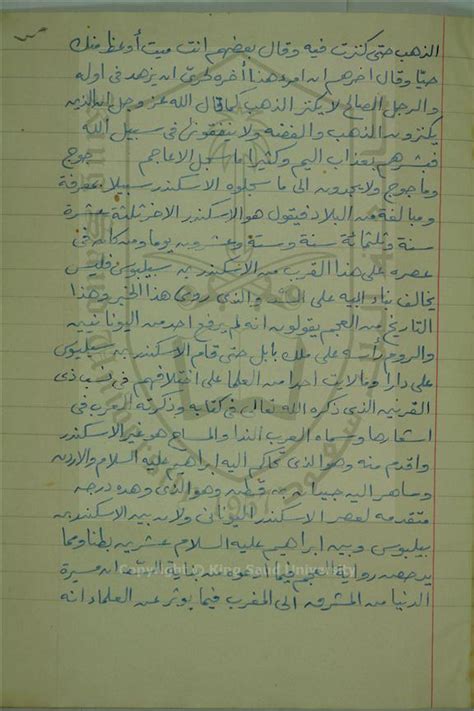 الذهب حتى كنزت فيه وقال بعضهم انت ميت أوعظ منك
حيا وقال آخرهم ان امرءا هذا آخره لحرى ان يزهد فى اوله
والرجل الصالح لا يكنز الذهب كما قال الله عز وجل ان الذين
يكنزون الذهب والفضة ولا ينفقونها فى سبيل الله
فبشرهم بعذاب اليم وكثيرا ما سجل الاعاجم جوج
وماجوج ولا يجدون الى ما سجلوه الاسكندر سبيلا بمعرفة
ومبالغة من البلاد فيقول هو الاسكندر الاغر ثلثة عشرة
سنة وثلثمائة سنة وستة وعشرون يوما ومن كان فى
عصره على هذا القرب من الاسكندر بن سيلبوس فليس
يخالف بناء اليه على السد والذى روى هذا الخبر وهذا
التاريخ من العجم يقولون انه لم يرفع احد من اليونانيين
والروم رأسه على ملك بابل حتى قام الاسكندر بن سيلبوس
على دارا وما لات احدا من العلما على اختلافهم فى نسب ذى
القرنين الذى ذكره الله تعالى فى كتابه وذكرته العرب فى
اشعارها وسماه العرب الندا والمساح هو غير الاسكندر
واقدم منه وهو الذى تحاكم اليه ابراهيم عليه السلام والاردن
وساهر اليه جبيبان بن قحطن وهو الذى وهده درجه
متقدمه لعصر الاسكندر اليونانى ولان بين الاسكندر بن
بيلبوس وبين ابراهيم عليه السلام عشرين بطنا ومما
يدحض رواية العجم فيما ادعوه من بناية السد ان مسيرة
الدنيا من المشرق الى المغرب فيما يوثر عن العلماء انه
Copyright © King Saud University